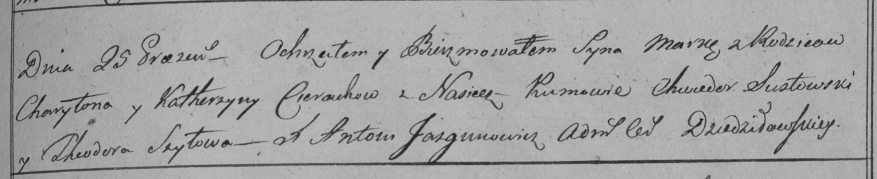 Dnia 25 Ochrzciłem y Bierzmowałem Syna z Rodzicow
Charytona y Katherzyny Cierachow z Kumowie Chwiedor Sustowski
y Theodora Szytowa — X Antoni Jazgunowicz Adm̃ Ceŕ Dziedziławskiey.